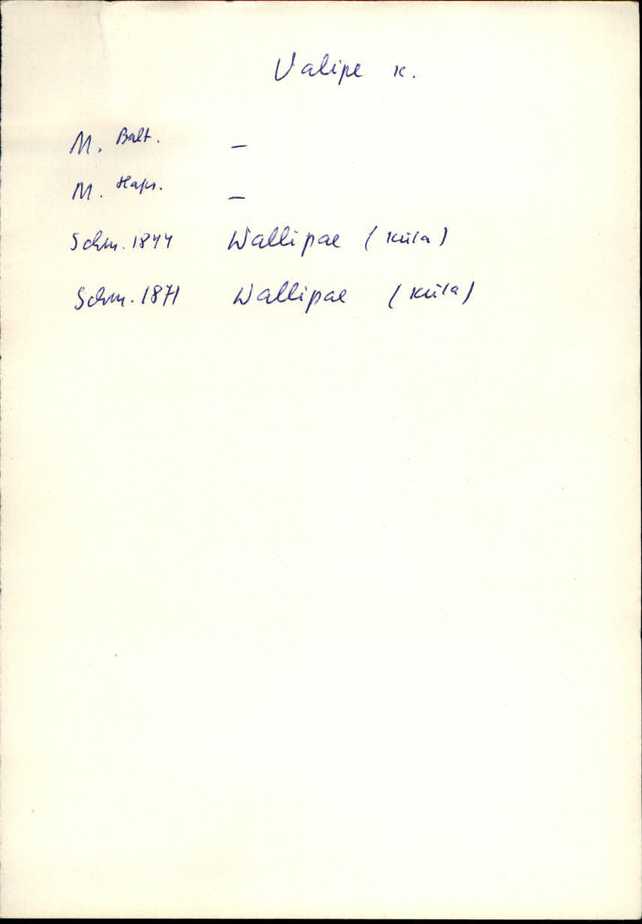 Valipe k.
M. Balt. —
M. Haps. —
Schm. 1844 Wallipae (küla)
Schm. 1871 Wallipae (küla)